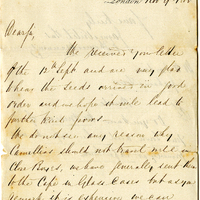 London Nov 9
Dear Sir,
We received your letter
of the 12th Sept and are very glad
to hear the Seeds arrived in good
order and we hope it will lead to
further trust favors
We do not see any reason why
Camellias should not travel well in
Close Boxes, we have generally sent them
to the Cape in Glass Cases but as you
remark it is expensive we can